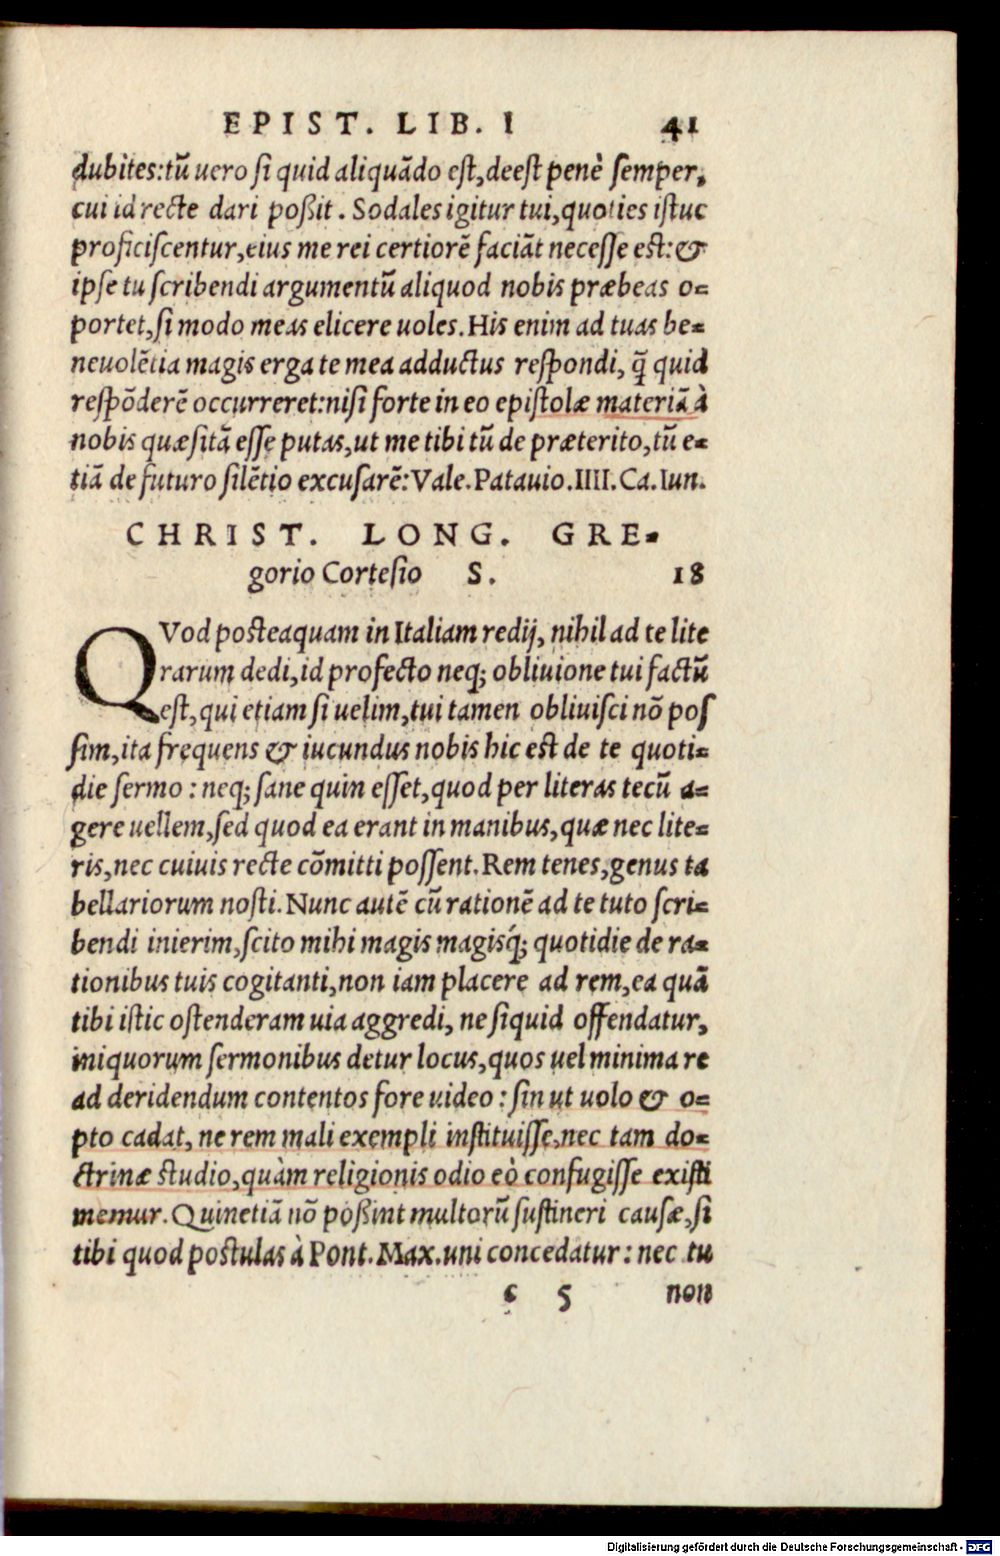 EPIST. LIB. I 41
dubites:tũ uero ſi quid aliquãdo eſt,deeſt penè ſemper,
cui id recte dari poßit. Sodales igitur tui,quoties iſtuc
proficiſcentur,eius me rei certiorẽ faciãt neceſſe eſt:&
ipſe tu ſcribendi argumentũ aliquod nobis præbeas o=
portet,ſi modo meas elicere uoles.His enim ad tuas be=
neuolẽtia magis erga te mea adductus reſpondi, q̃ quid
reſpõderẽ occurreret:niſi forte in eo epiſtolæ materiã à
nobis quæſitã eſſe putas,ut me tibi tũ de præterito,tũ e=
tiã de futuro ſilẽtio excuſarẽ:Vale.Patauio.IIII.Ca.Iun.
CHRIST. LONG. GRE=
gorio Corteſio S. 18
QVod poſteaquam in Italiam redij, nihil ad te lite
rarum dedi,id profecto neq; obliuione tui factũ
eſt,qui etiam ſi uelim,tui tamen obliuiſci nõ poſ
ſim,ita frequens & iucundus nobis hic eſt de te quoti=
die ſermo : neq; ſane quin eſſet,quod per literas tecũ a=
gere uellem,ſed quod ea erant in manibus,quæ nec lite=
ris,nec cuiuis recte cõmitti poſſent.Rem tenes,genus ta
bellariorum noſti.Nunc autẽ cũ rationẽ ad te tuto ſcri=
bendi inierim,ſcito mihi magis magisq́; quotidie de ra=
tionibus tuis cogitanti,non iam placere ad rem,ea quã
tibi iſtic oſtenderam uia aggredi, ne ſiquid offendatur,
iniquorum ſermonibus detur locus,quos uel minima re
ad deridendum contentos fore uideo : ſin ut uolo & o=
pto cadat, ne rem mali exempli inſtituiſſe,nec tam do=
ctrinæ ſtudio,quàm religionis odio eò confugiſſe exiſti
memur.Quinetiã nõ poßint multorũ ſuſtineri cauſæ,ſi
tibi quod poſtulas à Pont.Max.uni concedatur : nec tu
c 5 non
Digitalisierung gefördert durch die Deutsche Forschungsgemeinschaft - DFG